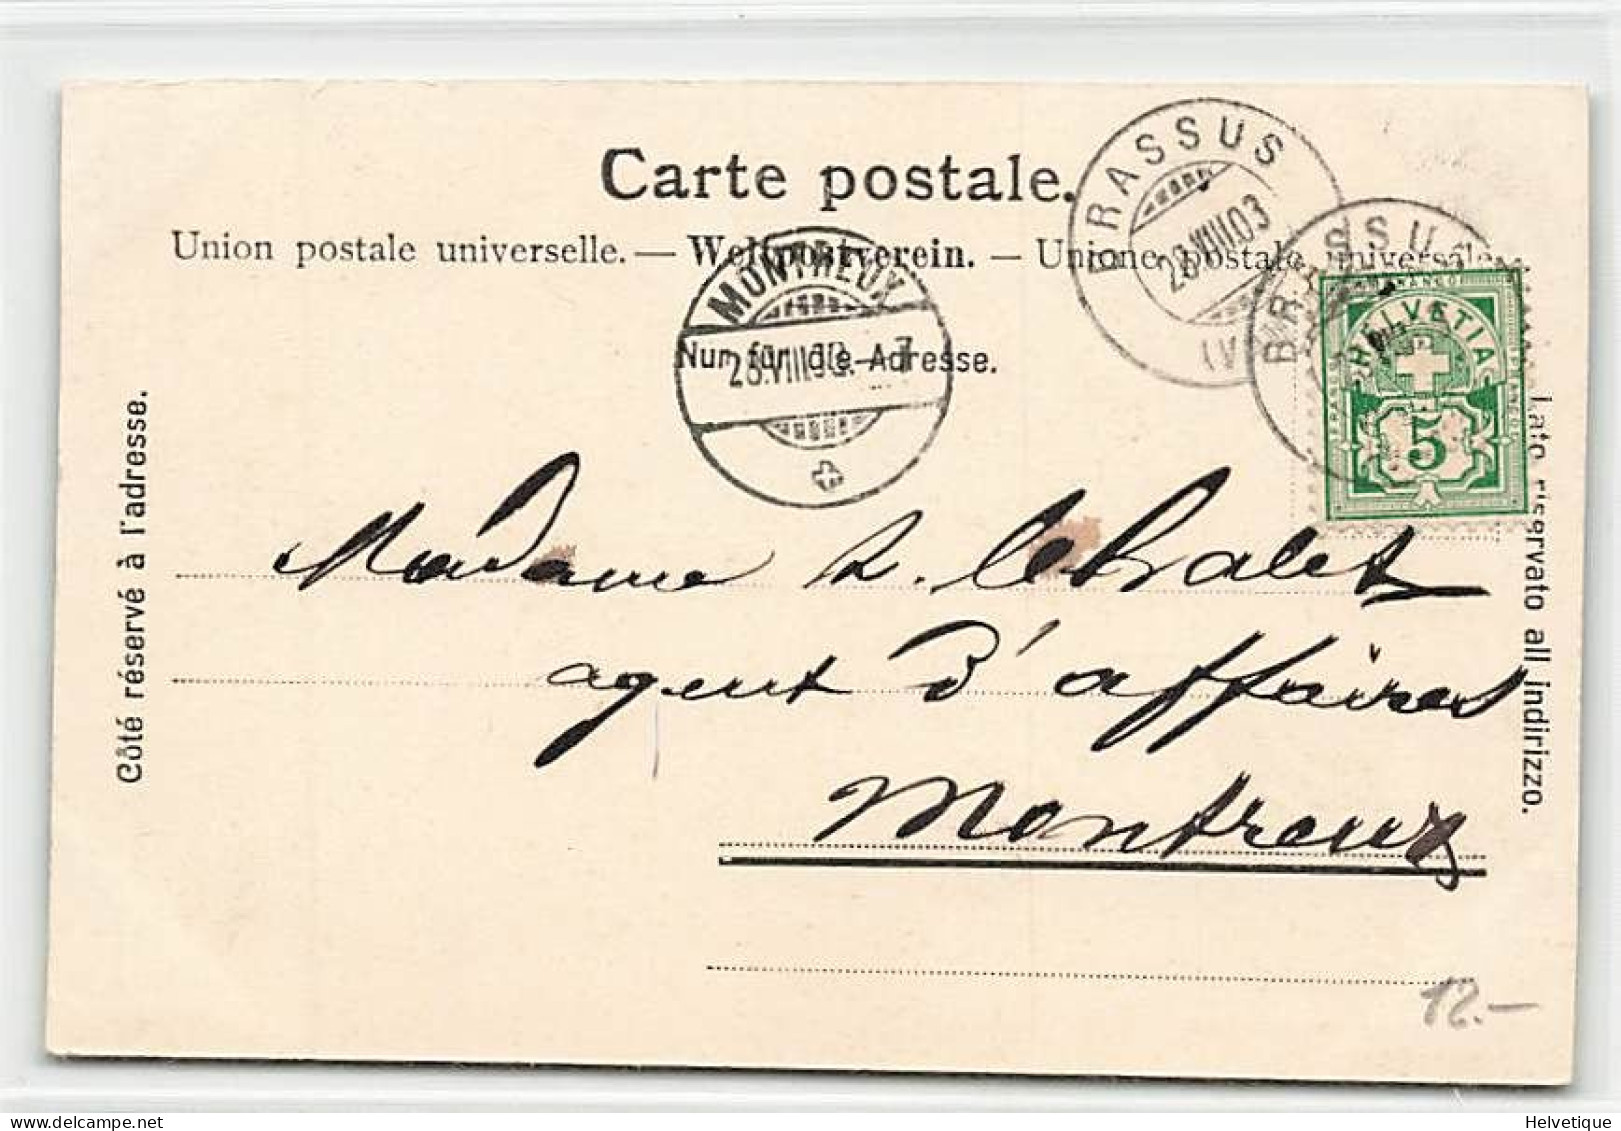 Carte postale.
Union postale universelle. — Weltpostverein. — Unione postale universale.
Nur für die Adresse.
BRASSUS
28.VIII.03
(V
BRASSUS
MONTREUX
28.VIII.03.-7
HELVETIA
FRANCO
5
Côté réservé à l'adresse.
Lato riservato all'indirizzo.
Madame
agent d'affaires
Montreux
12.-
Helvetique